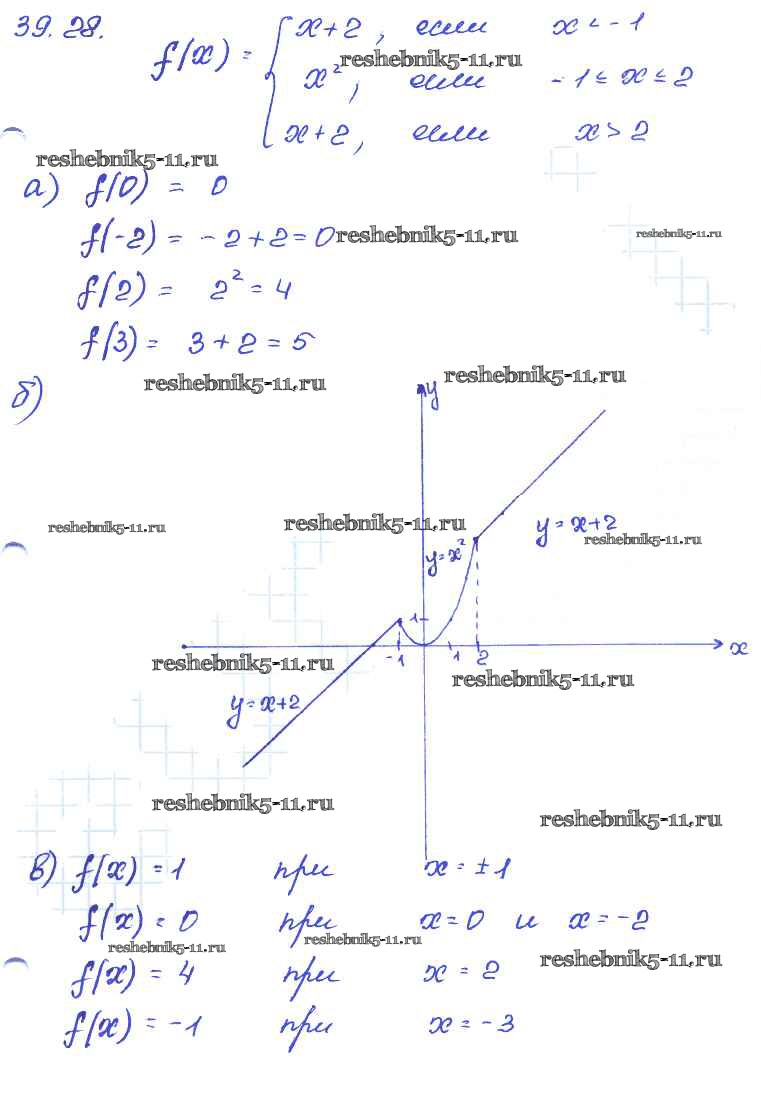 39.28.
f(x) = { x+2, если x < -1
reshebnik5-11.ru
x², если -1 ≤ x ≤ 2
x+2, если x > 2
reshebnik5-11.ru
а) f(0) = 0
f(-2) = -2+2=0 reshebnik5-11.ru reshebnik5-11.ru
f(2) = 2² = 4
f(3) = 3+2=5
б) reshebnik5-11.ru y reshebnik5-11.ru
reshebnik5-11.ru reshebnik5-11.ru y=x+2
reshebnik5-11.ru
y=x²
1
-1 1 2 x
reshebnik5-11.ru reshebnik5-11.ru
y=x+2
reshebnik5-11.ru reshebnik5-11.ru
в) f(x) = 1 при x = ±1
f(x) = 0 при x=0 и x=-2
reshebnik5-11.ru reshebnik5-11.ru reshebnik5-11.ru
f(x) = 4 при x = 2
f(x) = -1 при x = -3